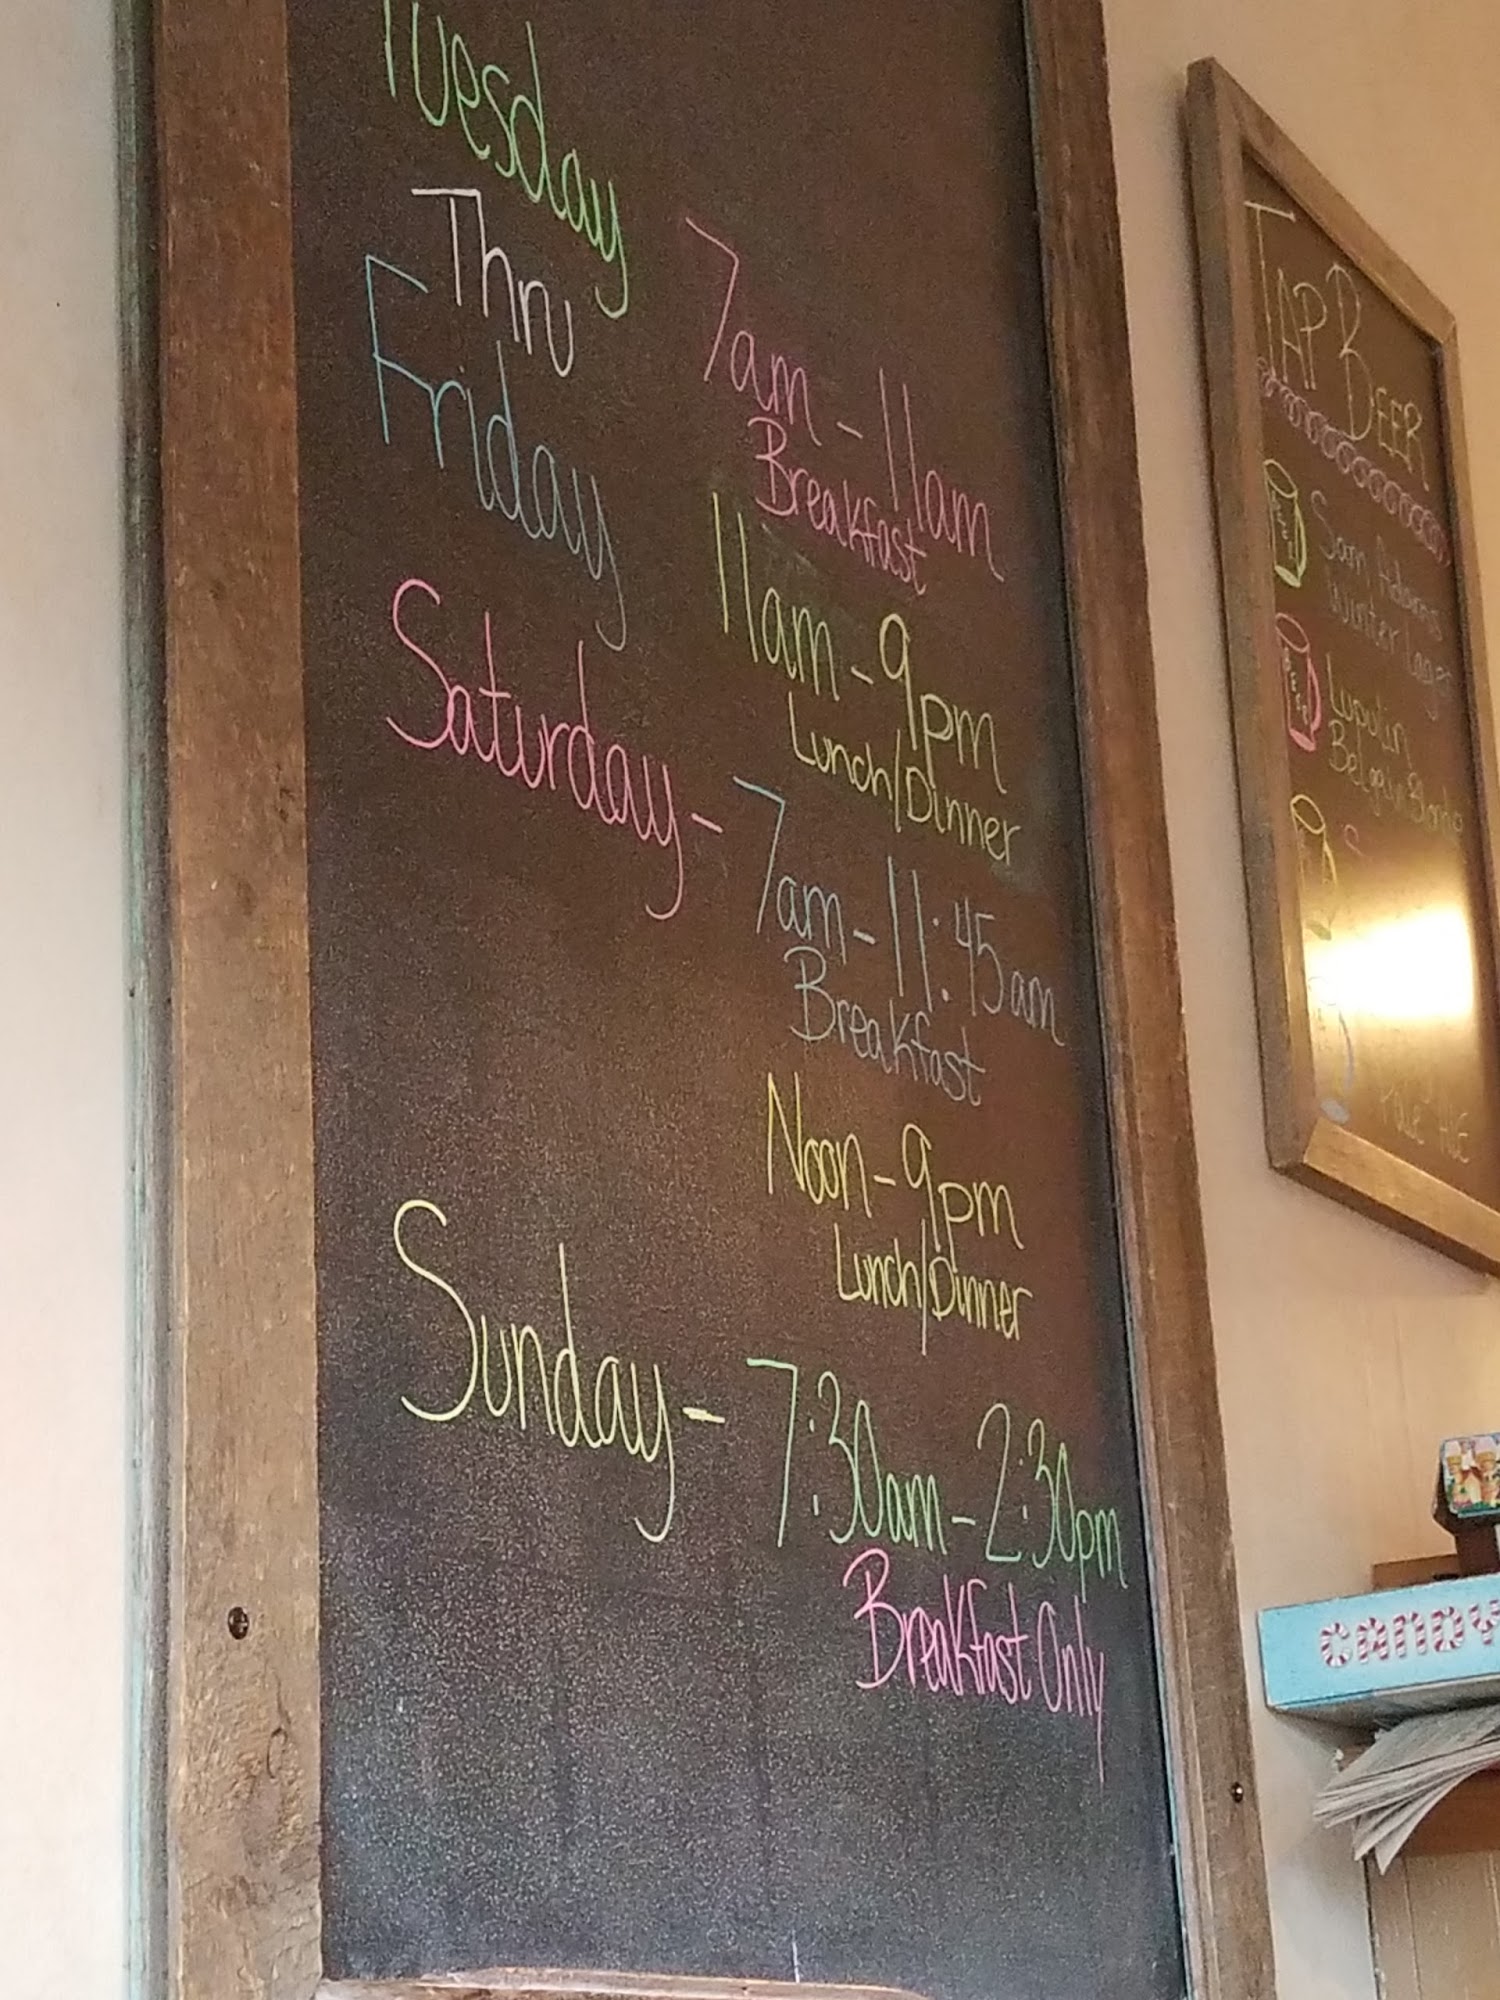 Tuesday
Thru
Friday
7am - 11am
Breakfast
11am - 9pm
Lunch/Dinner
Saturday - 7am - 11:45am
Breakfast
Noon - 9pm
Lunch/Dinner
Sunday - 7:30am - 2:30pm
Breakfast Only
TAP BEER
Sam Adams
Winter Lager
Lupulin
Belgain Blonde
Pale Ale
CANDY